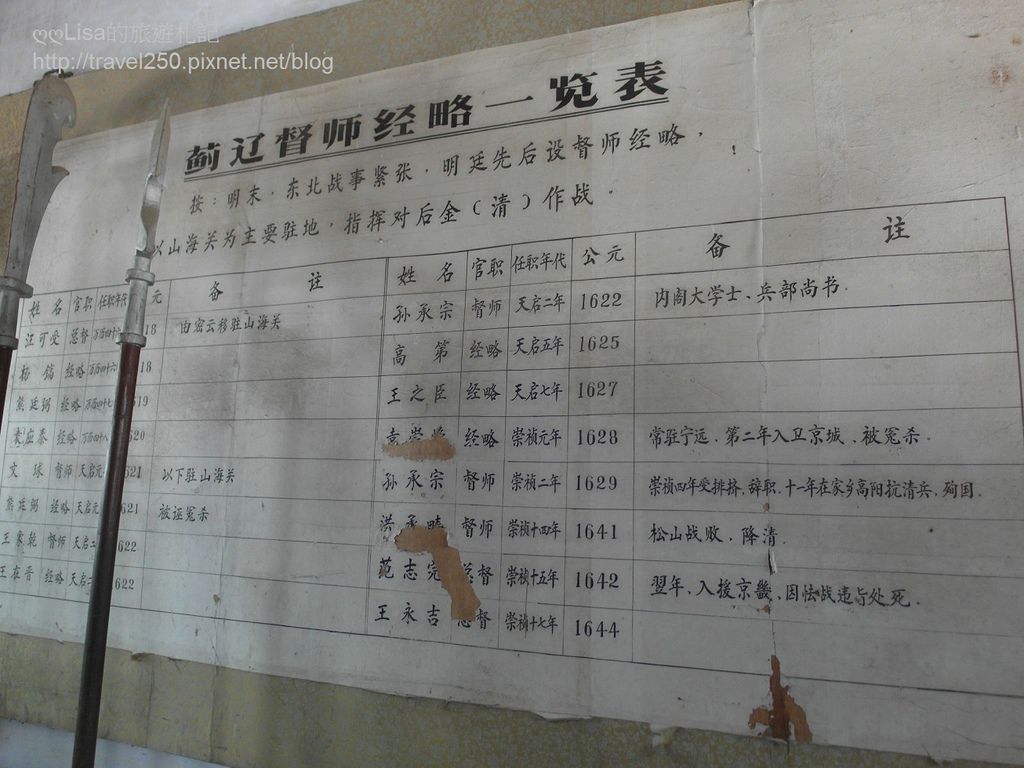 ღღLisa的旅遊札記
http://travel250.pixnet.net/blog
蓟辽督师经略一览表
按：明末，东北战事紧张，明廷先后设督师经略，
以山海关为主要驻地，指挥对后金（清）作战．
姓 名 官职 任职年代 元 备 注
汪可受 总督 万历四十六 18 由密云移驻山海关
杨 镐 经略 万历四十六 18
熊廷弼 经略 万历四十七 619
袁应泰 经略 万历四十八 620
文 球 督师 天启元 621 以下驻山海关
熊廷弼 经略 天启元 621 被诬冤杀
王象乾 督师 天启二 622
王在晋 经略 天启二 622
姓 名 官职 任职年代 公元 备 注
孙承宗 督师 天启二年 1622 内阁大学士、兵部尚书．
高 第 经略 天启五年 1625
王之臣 经略 天启七年 1627
袁崇 经略 崇祯元年 1628 常驻宁远、第二年入卫京城、被冤杀．
孙承宗 督师 崇祯二年 1629 崇祯四年受排挤，辞职．十一年在家乡高阳抗清兵，殉国．
洪承畴 督师 崇祯十四年 1641 松山战败、降清．
范志完 总督 崇祯十五年 1642 翌年、入援京畿、因怯战逮与处死．
王永吉 总督 崇祯十七年 1644